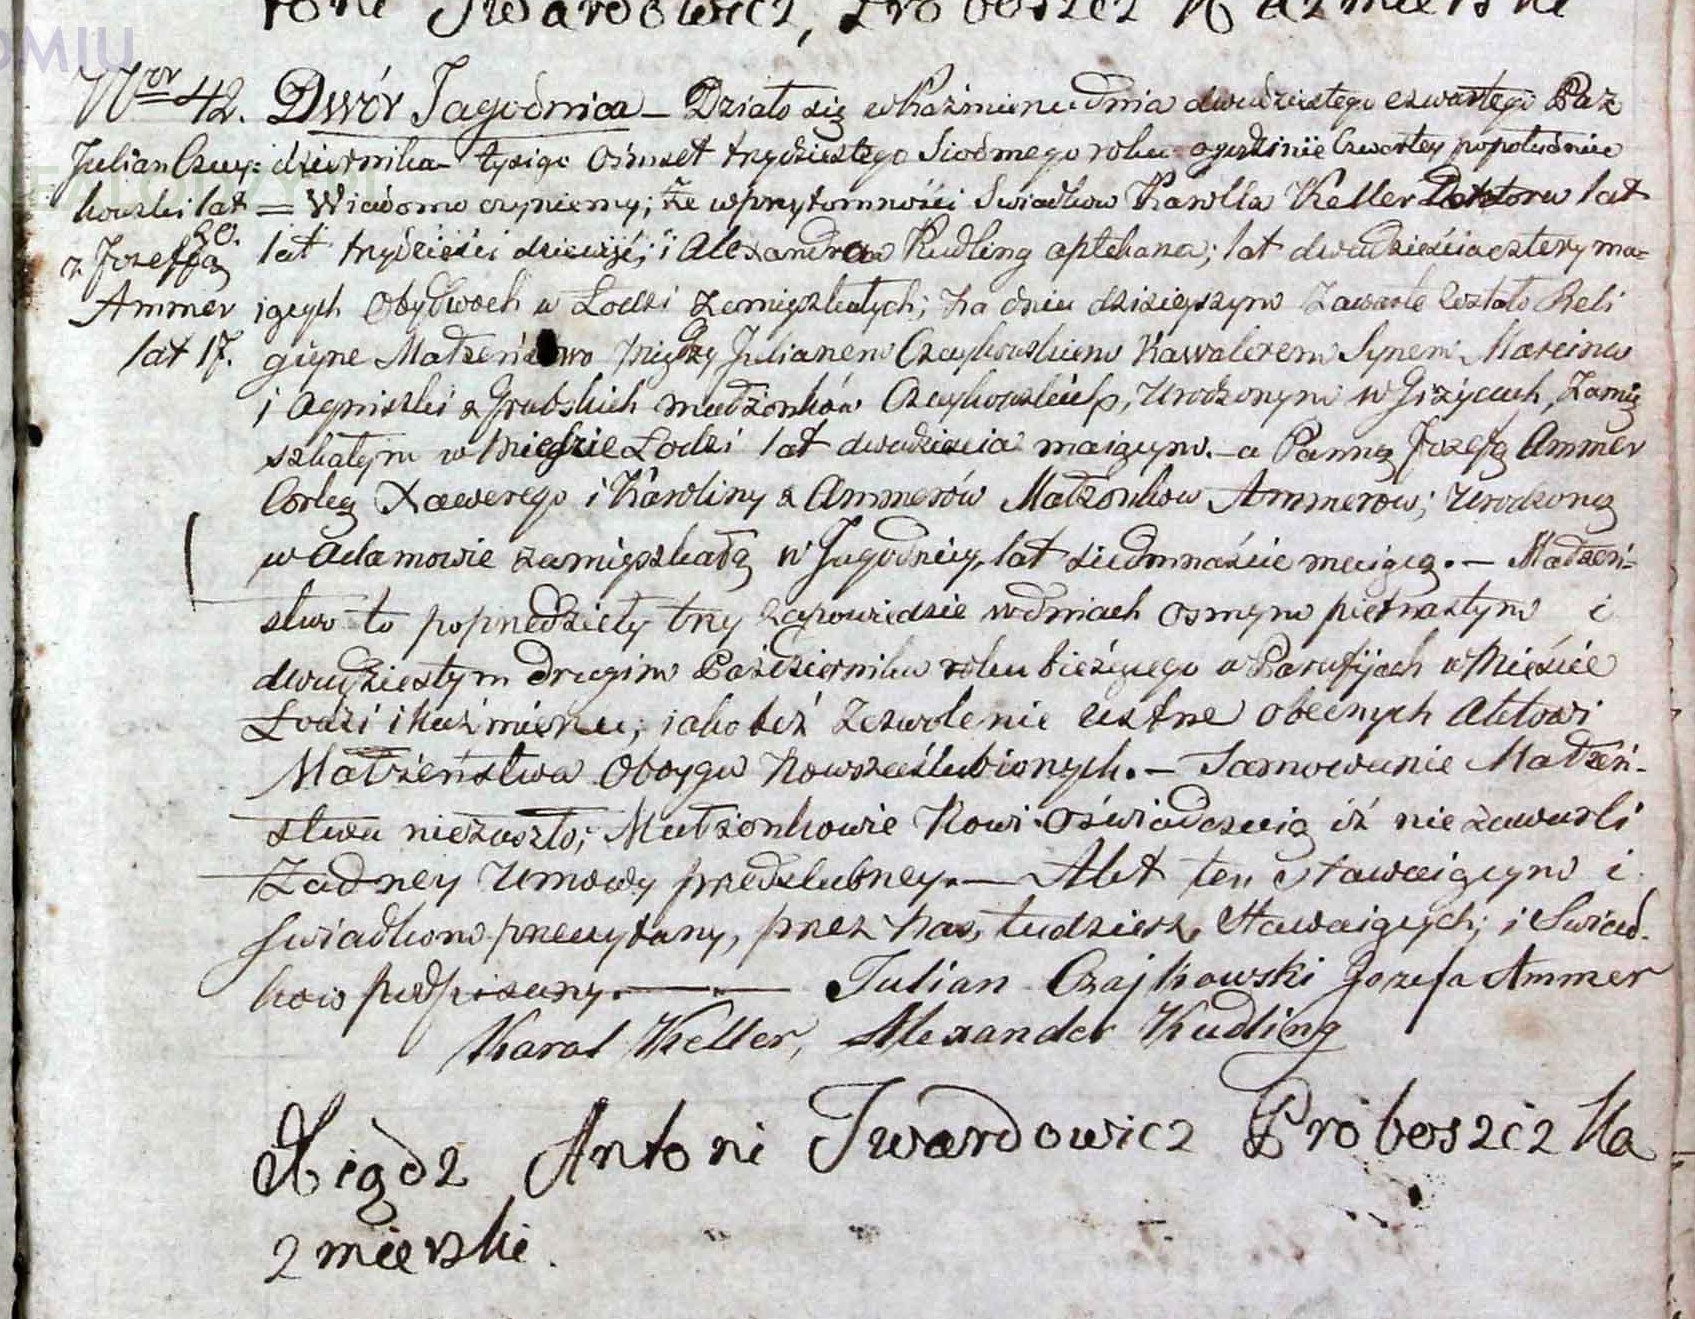 Twardowicz, Proboszcz Kazmierski
Nor 42. Dwór Jagodnica – Działo się w Kaźmierzu dnia dwudziestego czwartego Paź
Julian Czay= dziernika tysiąc Ośmset trzydziestego Siodmego roku o godzinie Czwartey popołudniu
kowski lat = Wiadomo czyniemy; że w przytomności Swiadkow Karolla Keller Doktora lat
20.
z Jozeffą lat trzydzieści dziewięć; i Alexandra Kudling aptekarza; lat dwadzieścia cztery ma=
Ammer iących Obydwoch w Łodzi Zamięszkałych; Na dniu dzisieyszym Zawarte Zostało Reli
lat 17. giyne Małżeństwo między Julianem Czaykowskiem Kawalerem Synem Marcina
i Agniszki z Grabskich małżonków Czaykowskich, Urodzonym w Giżycach, Zamię
szkałym w Mieście Łodzi lat dwadzieścia maiącym. – a Panną Jozefą Ammer
Corką Xawerego i Karoliny z Ammerów Małżonkow Ammerow; Urodzoną
w Adamowie zamięszkałą w Jagodnicy, lat siedmnaście maiącą. – Małżeń=
stwo to poprzedziły trzy zapowiedzie w dniach osmym piętnastym i
dwudziestym drugim Października roku bieżącego w Parafijach w Mieście
Łodzi i Kaźmierzu; iako też Zezwolenie ustne obecnych Aktowi
Małżeństwa Oboyga Nowozaślubionych. – Tamowanie Małżeń=
stwa niezaszło; Małżonkowie Nowi oświadczaią iż nie zawarli
Żadney Umowy przedslubney. – Akt ten Stawaiącym i
Swiadkom przeczytany, przez Nas, tudzież Stawaiących; i Swiad=
kow podpisany. — Julian Czajkowski Jozefa Ammer
Karol Keller, Alexander Kudling
Xiądz Antoni Twardowicz Proboszcz Ka
zmierski.